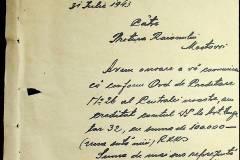 31 Iulie 1943
Către
Pretura Raionului
Mostovoi
Avem onoare a vă comunica
că conform Ord. de Creditare
No. 26 al Centralei noastre, am
creditat contul 
for 32, cu suma de 100.000 -
(una sută mii) RKKS
Suma de mai sus reprezintă